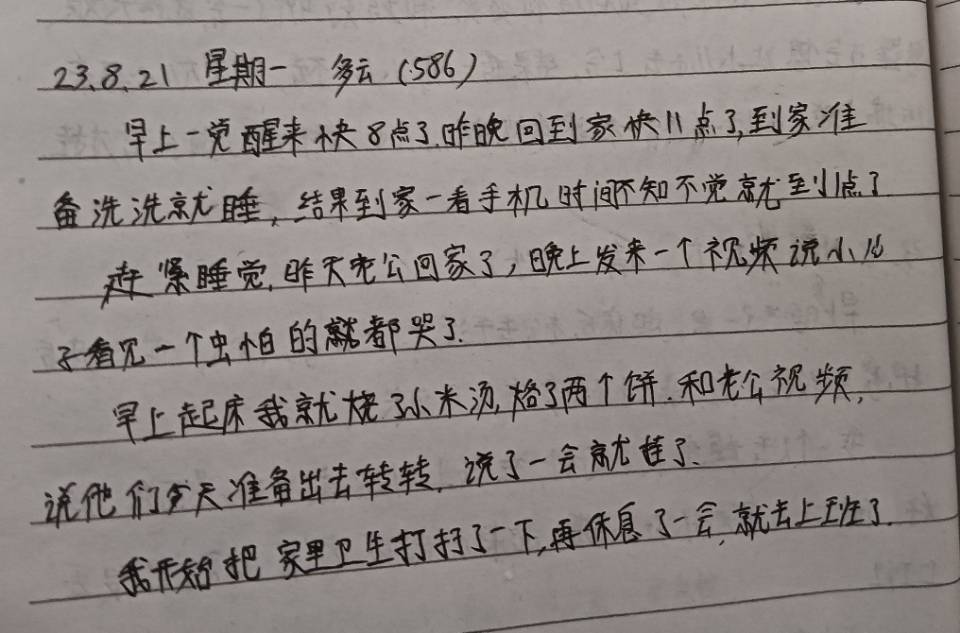 23.8.21 星期一 多云 (586)
早上一觉醒来快8点了.昨晚回到家快11点了,到家准
备洗洗就睡,结果到家一看手机时间不知不觉就到1点了
赶紧睡觉.昨天老公回家了,晚上发来一个视频说小儿
子看见一个虫怕的都哭了.
早上起床我就烧了小米汤,烙了两个饼.和老公视频,
说他们今天准备出去转转,说了一会就挂了.
我开始把家里卫生打扫了一下,再休息了一会,就去上班了.